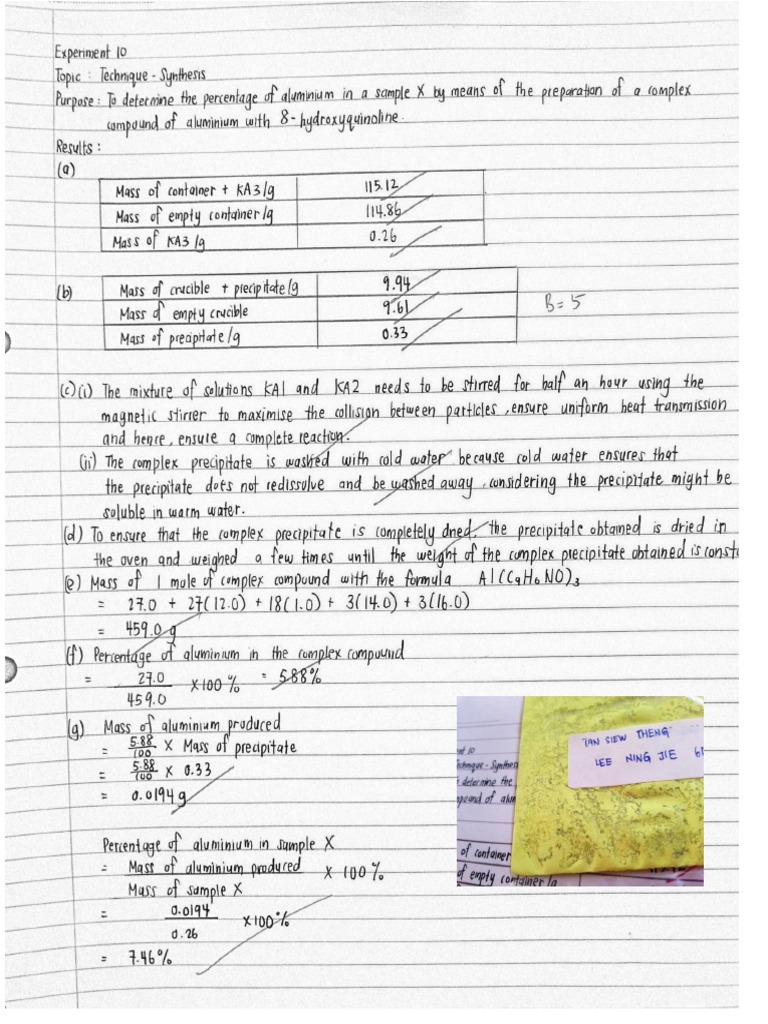 Experiment 10
Topic : Technique - Synthesis
Purpose : To determine the percentage of aluminium in a sample X by means of the preparation of a complex
compound of aluminium with 8-hydroxyquinoline.
Results :
(a)
Mass of container + KA3/g 115.12
Mass of empty container/g 114.86
Mass of KA3/g 0.26
(b)
Mass of crucible + precipitate/g 9.94
Mass of empty crucible 9.61
Mass of precipitate/g 0.33
B = 5
(c)(i) The mixture of solutions KA1 and KA2 needs to be stirred for half an hour using the
magnetic stirrer to maximise the collision between particles, ensure uniform heat transmission
and hence, ensure a complete reaction.
(ii) The complex precipitate is washed with cold water because cold water ensures that
the precipitate does not redissolve and be washed away, considering the precipitate might be
soluble in warm water.
(d) To ensure that the complex precipitate is completely dried, the precipitate obtained is dried in
the oven and weighed a few times until the weight of the complex precipitate obtained is consta
(e) Mass of 1 mole of complex compound with the formula Al(C9H6NO)3
= 27.0 + 27(12.0) + 18(1.0) + 3(14.0) + 3(16.0)
= 459.0 g
(f) Percentage of aluminium in the complex compound
= 27.0/459.0 × 100 % = 5.88%
(g) Mass of aluminium produced
= 5.88/100 × Mass of precipitate
= 5.88/100 × 0.33
= 0.0194 g
Percentage of aluminium in sample X
= Mass of aluminium produced / Mass of sample X × 100 %
= 0.0194/0.26 × 100 %
= 7.46%
TAN SIEW THENG
LEE NING JIE
nt 10
Technique - Synthes
determine the
mpound of alum
of container
of empty container/g